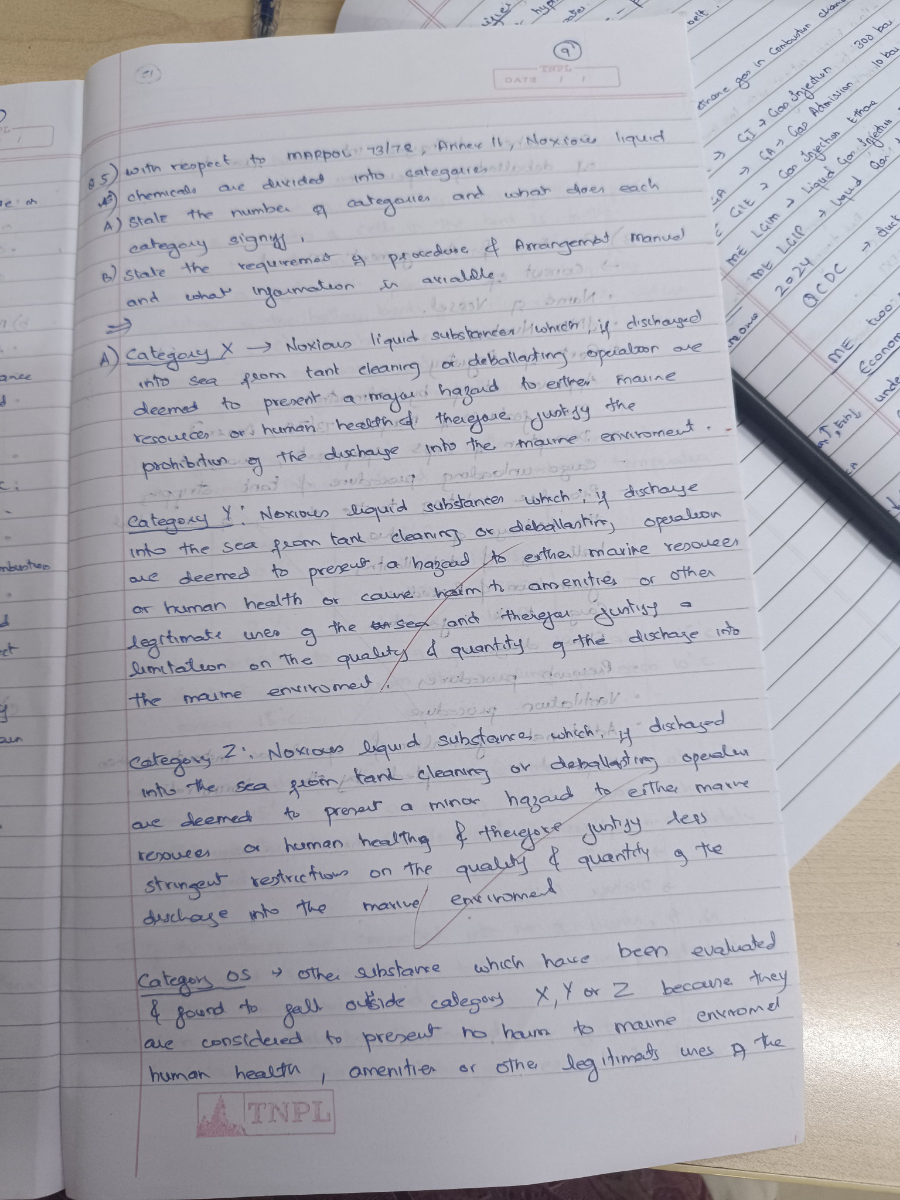 9
TNPL
DATE / /
Q5) with respect to MARPOL 73/78, Annex 11, Noxious liquid
chemicals are divided into categories
A) State the number of categories and what does each
category signify.
B) State the requirement of procedure & Arrangement manual
and what information is avialble.
⇒
A) Category X → Noxious liquid substances which, if discharged
into sea from tank cleaning or deballasting operation are
deemed to present a major hazard to either marine
resources or human health & therefore justify the
prohibition of the discharge into the marine enviroment.
Category Y: Noxious liquid substances which, if discharge
into the sea from tank cleaning or deballasting operation
are deemed to present a hazard to either marine resources
or human health or cause harm to amenities or other
legitimate uses of the sea and therefor justify a
limitation on the quality & quantity of the discharge into
the marine enviroment.
Category Z: Noxious liquid substances which, if discharged
into the sea from tank cleaning or deballasting operation
are deemed to present a minor hazard to either marine
resources or human health & therefore justify less
stringent restrictions on the quality & quantity of the
discharge into the marine enviroment
Category OS → other substance which have been evaluated
& found to fall outside category X, Y or Z because they
are considered to present no harm to marine enviromet
human health, amenities or other legitimate uses of the
TNPL
in Combustion
GI → Gas Injection 300 bar
GA → Gas Admission 10 bar
GIE → Gas Injection Ethane
ME LGIM → Liquid Gas Injection
ME LGIP → Liquid Gas
2024
QCDC →
ME two
Econom
unde